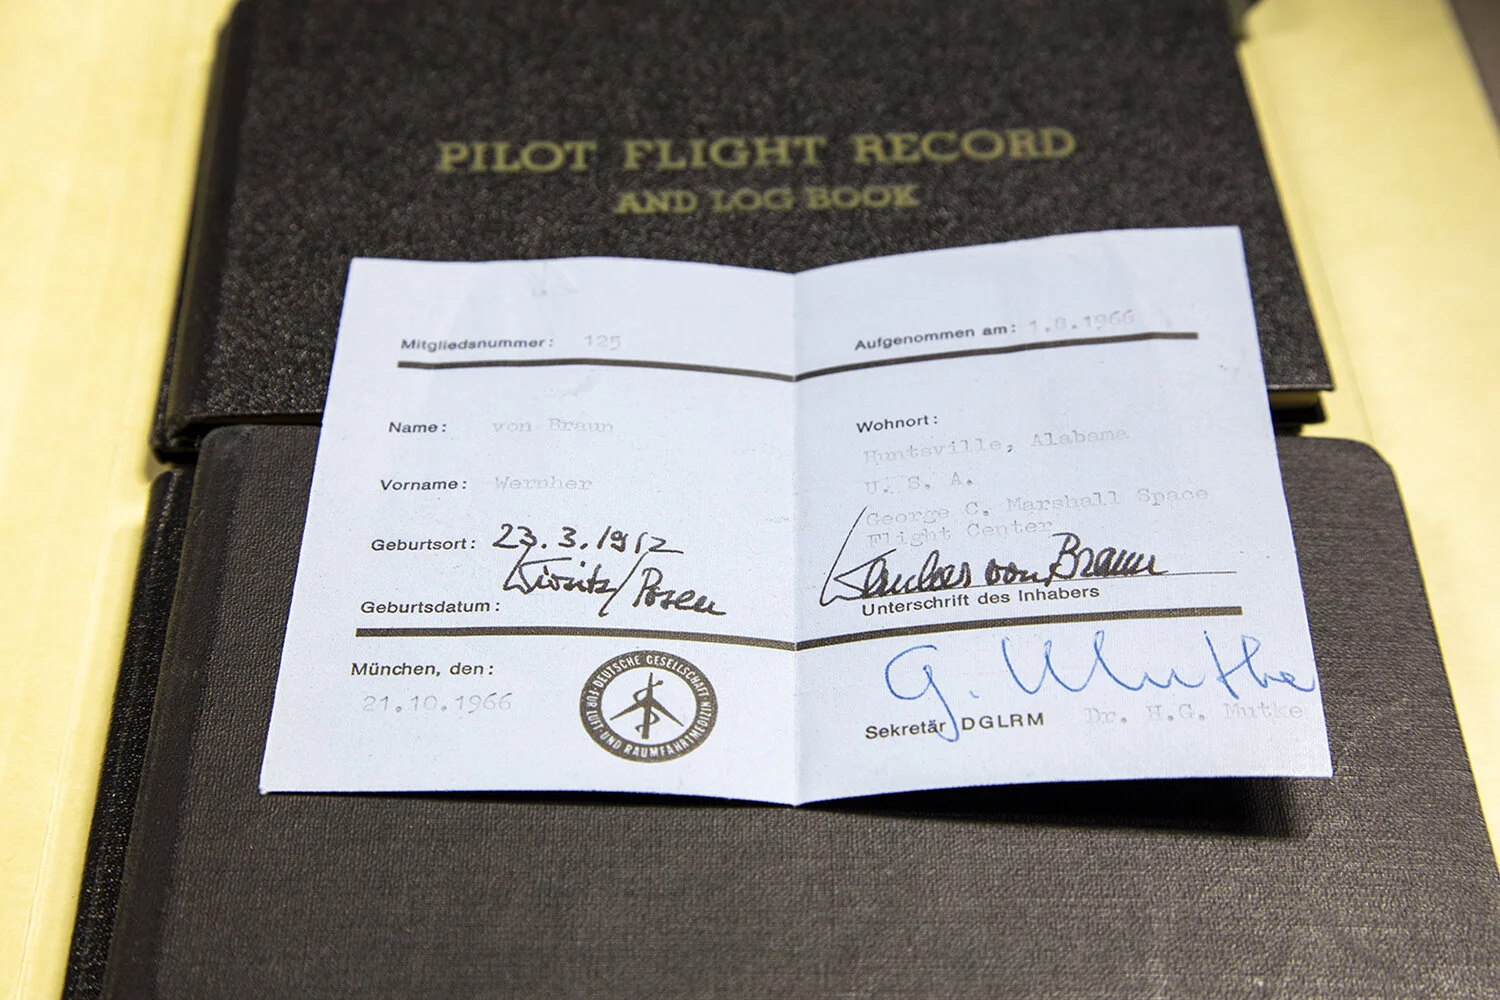 PILOT FLIGHT RECORD
AND LOG BOOK
Mitgliedsnummer: 125
Name: von Braun
Vorname: Wernher
Geburtsort: 23.3.1912
Wirsitz/Posen
Geburtsdatum:
München, den:
21.10.1966
DEUTSCHE GESELLSCHAFT
FÜR LUFT- UND RAUMFAHRTMEDIZIN
Aufgenommen am: 1.8.1966
Wohnort:
Huntsville, Alabama
U. S. A.
George C. Marshall Space
Flight Center
Wernher von Braun
Unterschrift des Inhabers
G. Mutke
Sekretär DGLRM Dr. H.G. Mutke